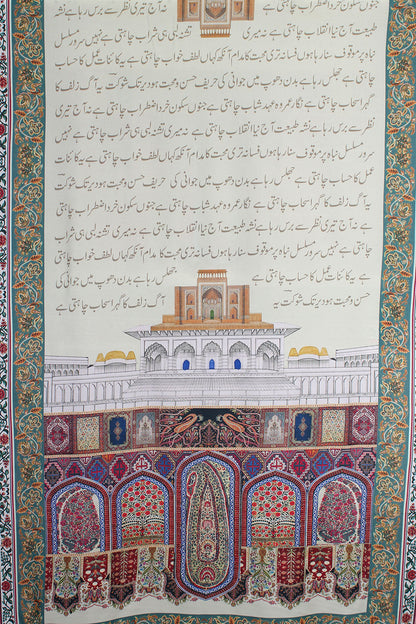 چاہتی ہے جنوں سکون خرد اضطراب چاہتی ہے نہ آج تیری نظر سے برس رہا ہے نشہ
طبیعت آج نیا انقلاب چاہتی ہے نہ میری تشنہ لبی ہی شراب چاہتی ہے نہیں سرور مسلسل
نباہ پر موقوف سنا رہا ہوں فسانہ تری محبت کا مدام آنکھ کہاں لطف خواب چاہتی ہے یہ کائنات عمل کا حساب
چاہتی ہے جھلس رہا ہے بدن دھوپ میں جوانی کی حریف حسن و محبت ہو دیر تک شوکت یہ آگ زلف کا
گہرا سحاب چاہتی ہے نگار عمر وہ عہد شباب چاہتی ہے جنوں سکون خرد اضطراب چاہتی ہے نہ آج تیری
نظر سے برس رہا ہے نشہ طبیعت آج نیا انقلاب چاہتی ہے نہ میری تشنہ لبی ہی شراب چاہتی ہے نہیں
سرور مسلسل نباہ پر موقوف سنا رہا ہوں فسانہ تری محبت کا مدام آنکھ کہاں لطف خواب چاہتی ہے یہ کائنات
عمل کا حساب چاہتی ہے جھلس رہا ہے بدن دھوپ میں جوانی کی حریف حسن و محبت ہو دیر تک شوکت
یہ آگ زلف کا گہرا سحاب چاہتی ہے نگار عمر وہ عہد شباب چاہتی ہے جنوں سکون خرد اضطراب
چاہتی ہے نہ آج تیری نظر سے برس رہا ہے نشہ طبیعت آج نیا انقلاب چاہتی ہے نہ میری تشنہ لبی ہی شراب
چاہتی ہے نہیں سرور مسلسل نباہ پر موقوف سنا رہا ہوں فسانہ تری محبت کا مدام آنکھ کہاں لطف خواب چاہتی
ہے یہ کائنات عمل کا حساب چاہتی ہے جھلس رہا ہے بدن دھوپ میں جوانی کی حریف
حسن و محبت ہو دیر تک شوکت یہ آگ زلف کا گہرا سحاب چاہتی ہے